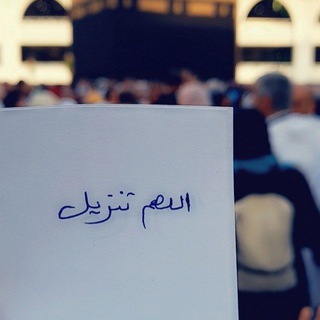 اللهم تنزيل